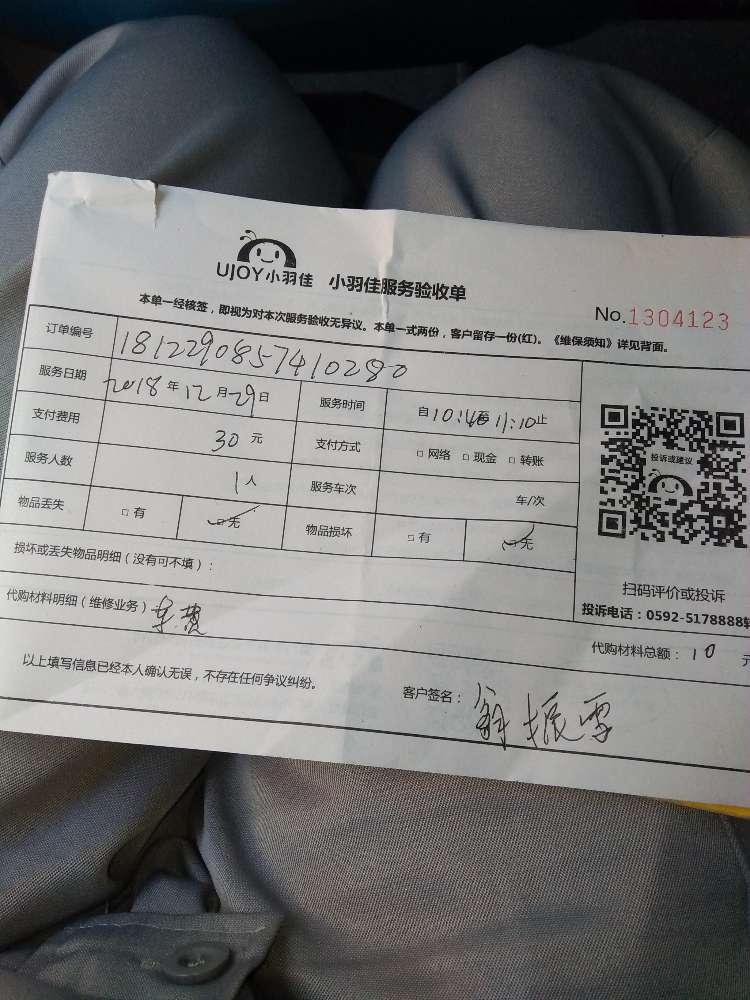 UJOY小羽佳 小羽佳服务验收单
No.1304123
本单一经核签,即视为对本次服务验收无异议。本单一式两份,客户留存一份(红)。《维保须知》详见背面。
订单编号 1812290857410280
服务日期 2018年12月29日 服务时间 自10:40至11:10止
支付费用 30元 支付方式 □网络 □现金 □转账
服务人数 1人 服务车次 车/次
物品丢失 □有 □无 物品损坏 □有 □无
投诉或建议
损坏或丢失物品明细(没有可不填):
扫码评价或投诉
投诉电话:0592-5178888转
代购材料明细(维修业务) 车费
代购材料总额:10元
以上填写信息已经本人确认无误,不存在任何争议纠纷。
客户签名: 翁振雪